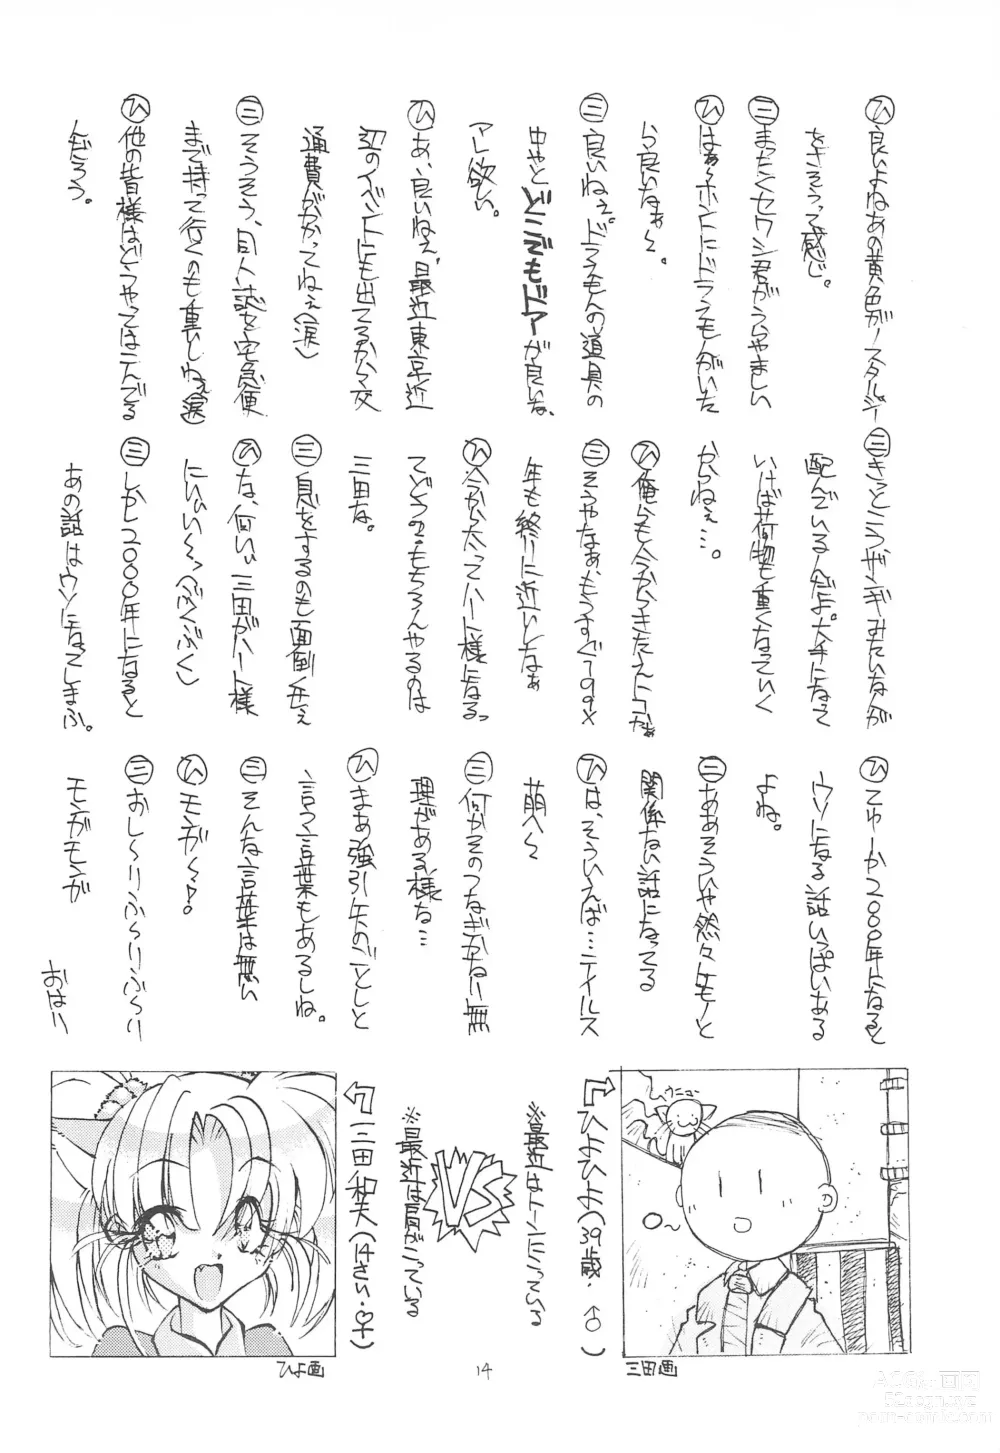 ひ 良いよねあの黄色がノスタルジー
をさそうって感じ。
三 まったくセワシ君がうらやましい
ひ はぁ〜ホントにドラえもんがいた
ら良いなぁ〜。
三 良いねぇ。ドラえもんの道具の
中やと どこでもドアーが良いな、
アレ欲しい。
ひ あ、良いねぇ、最近東京近
辺のイベントにも出てるから交
通費がかかってねぇ(涙)
三 そうそう、同人誌を宅急便
まで持って行くのも重いしねぇ(涙)
ひ 他の皆様はどうやってはこんでる
んだろう。
三 きっとこうザンギみたいなんが
配んでいるんだよ。大手になって
いけば荷物も重くなっていく
からねぇ…。
ひ 俺らも今からきたえとコかぁ
三 そうやなぁ、もうすぐ199X
年も終りに近いしなぁ
ひ 今から太ってハート様になるっ
てどう?もちろんやるのは
三田な。
三 息をするのも面倒くせぇ
ひ な、何いぃ 三田がハート様
にぃぃい〜っ(ぶくぶく)
三 しかし2000年になると
あの話はウソになってしまふ。
ひ てゆーか2000年になると
ウソになる話いっぱいある
よね。
三 ああそういや然々ケモノと
関係ない話になってる
ひ は、そういえば…テイルス
萌へ〜
三 何かそのつなぎかなり無
理がある様な…
ひ まぁ強引矢のごとしと
言う言葉もあるしね。
三 そんな言葉は無い
ひ モンガ〜!
三 おし〜りふ〜りふ〜り
モンガモンガ
おはり
三田和夫(14さい・♀)
※最近は肩がこっている
VS
※最近はトーンにこっている
ひよひよ(39歳・♂)
ウニュー
ひよ画
14
三田画